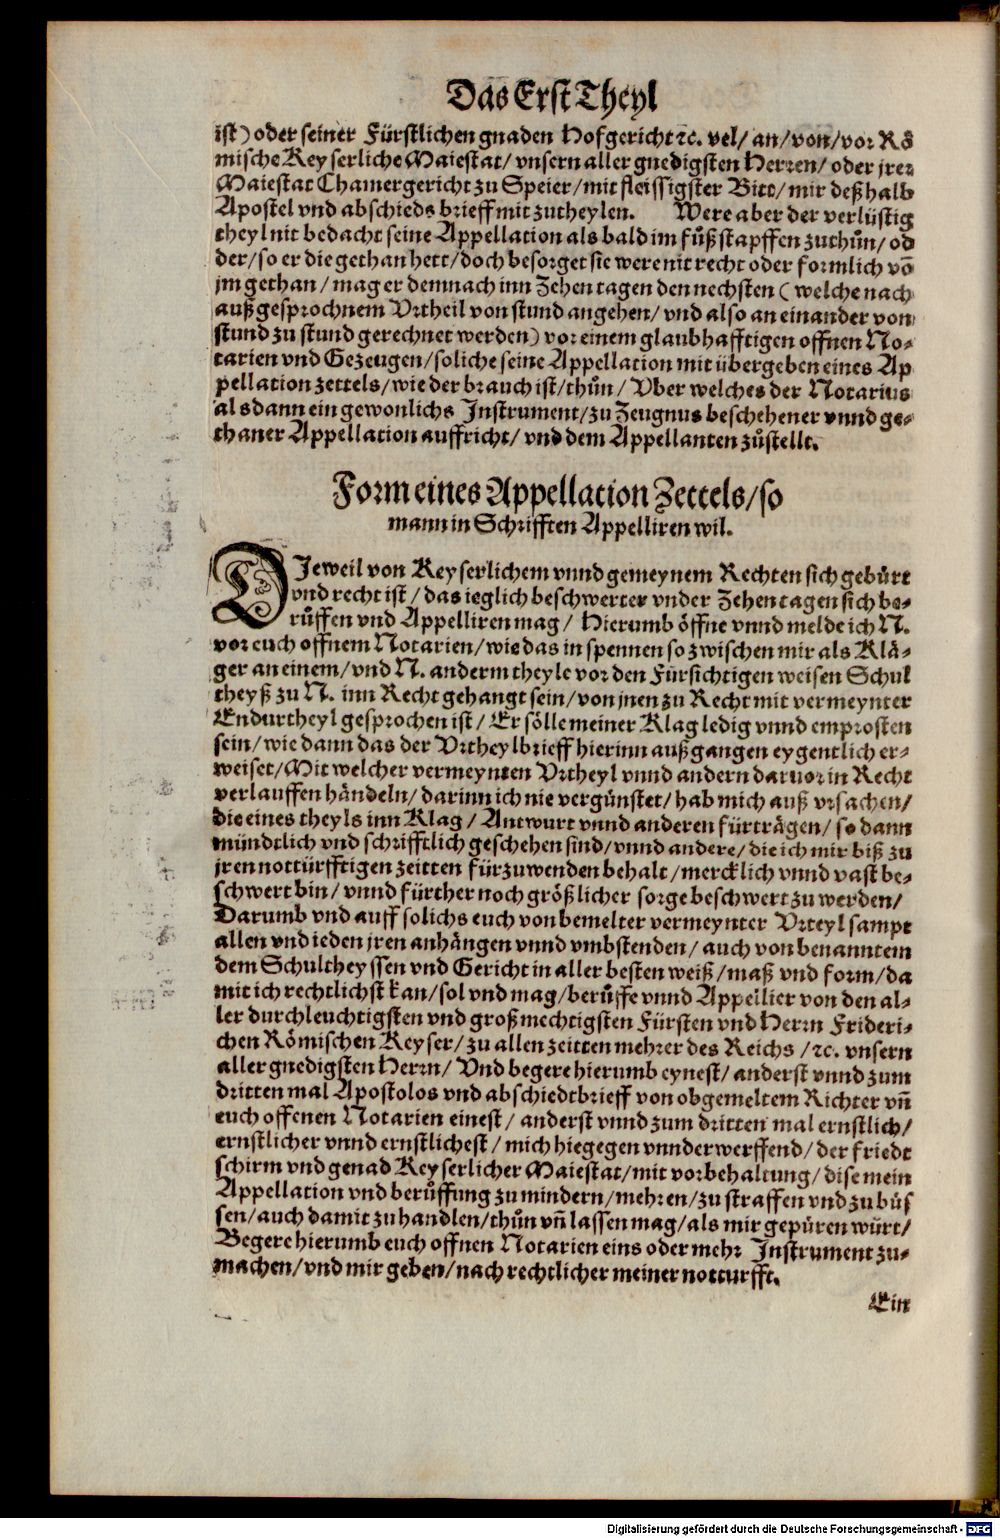 Das Erst Theyl
ist) oder seiner Fürstlichen gnaden Hofgericht ꝛc. vel/ an/ von/ vor Rö
mische Keyserliche Maiestat/ vnsern aller gnedigsten Herren/ oder jrer
Maiestat Chamergericht zu Speier/ mit fleissigster Bitt/ mir deßhalb
Apostel vnd abschieds brieff mit zutheylen. Were aber der verlüstig
theyl nit bedacht seine Appellation als bald im fůßstapffen zuthůn/ od
der/ so er die gethan hett/ doch besorget sie were nit recht oder formlich võ
jm gethan/ mag er demnach inn Zehen tagen den nechsten (welche nach
außgesprochnem Vrtheil von stund angehen/ vnd also an einander von
stund zu stund gerechnet werden) vor einem glaubhafftigen offnen No-
tarien vnd Gezeugen/ soliche seine Appellation mit übergeben eines Ap
pellation zettels/ wie der brauch ist/ thůn/ Vber welches der Notarius
als dann ein gewonlichs Instrument/ zu Zeugnus beschehener vnnd ge-
thaner Appellation auffricht/ vnd dem Appellanten zůstellt.
Form eines Appellation Zettels/ so
mann in Schrifften Appelliren wil.
DJeweil von Keyserlichem vnnd gemeynem Rechten sich gebürt
vnd recht ist/ das ieglich beschwerter vnder Zehen tagen sich be-
růffen vnd Appelliren mag/ Hierumb öffne vnnd melde ich N.
vor euch offnem Notarien/ wie das in spennen so zwischen mir als Klä-
ger an einem/ vnd N. anderm theyle vor den Fürsichtigen weisen Schul
theyß zu N. inn Recht gehangt sein/ von jnen zu Recht mit vermeynter
Endurtheyl gesprochen ist/ Er sölle meiner Klag ledig vnnd emprosten
sein/ wie dann das der Vrtheylbrieff hierinn außgangen eygentlich er-
weiset/ Mit welcher vermeynten Vrtheyl vnnd andern daruor in Recht
verlauffen händeln/ darinn ich nie vergünstet/ hab mich auß vrsachen/
die eines theyls inn Klag/ Antwurt vnnd anderen fürträgen/ so dann
mündtlich vnd schrifftlich geschehen sind/ vnnd andere/ die ich mir biß zu
jren nottürfftigen zeitten fürzuwenden behalt/ mercklich vnnd vast be-
schwert bin/ vnnd fürther noch größlicher sorge beschwert zu werden/
Darumb vnd auff solichs euch von bemelter vermeynter Vrteyl sampt
allen vnd ieden jren anhängen vnnd vmbstenden/ auch von benanntem
dem Schultheyssen vnd Gericht in aller besten weiß/ maß vnd form/ da
mit ich rechtlichst kan/ sol vnd mag/ berůffe vnnd Appellier von den al-
ler durchleuchtigsten vnd großmechtigsten Fürsten vnd Herrn Frideri-
chen Römischen Keyser/ zu allen zeitten mehrer des Reichs/ ꝛc. vnsern
aller gnedigsten Herrn/ Vnd begere hierumb eynest/ anderst vnnd zum
dritten mal Apostolos vnd abschiedtbrieff von obgemeltem Richter vñ
euch offenen Notarien einest/ anderst vnnd zum dritten mal ernstlich/
ernstlicher vnnd ernstlichest/ mich hiegegen vnnderwerffend/ der friedt
schirm vnd genad Keyserlicher Maiestat/ mit vorbehaltung/ dise mein
Appellation vnd berůffung zu mindern/ mehren/ zu straffen vnd zu büs
sen/ auch damit zu handlen/ thůn vñ lassen mag/ als mir gepüren würt/
Begere hierumb euch offnen Notarien eins oder mehr Instrument zu-
machen/ vnd mir geben/ nach rechtlicher meiner notturfft.
Ein
Digitalisierung gefördert durch die Deutsche Forschungsgemeinschaft - DFG